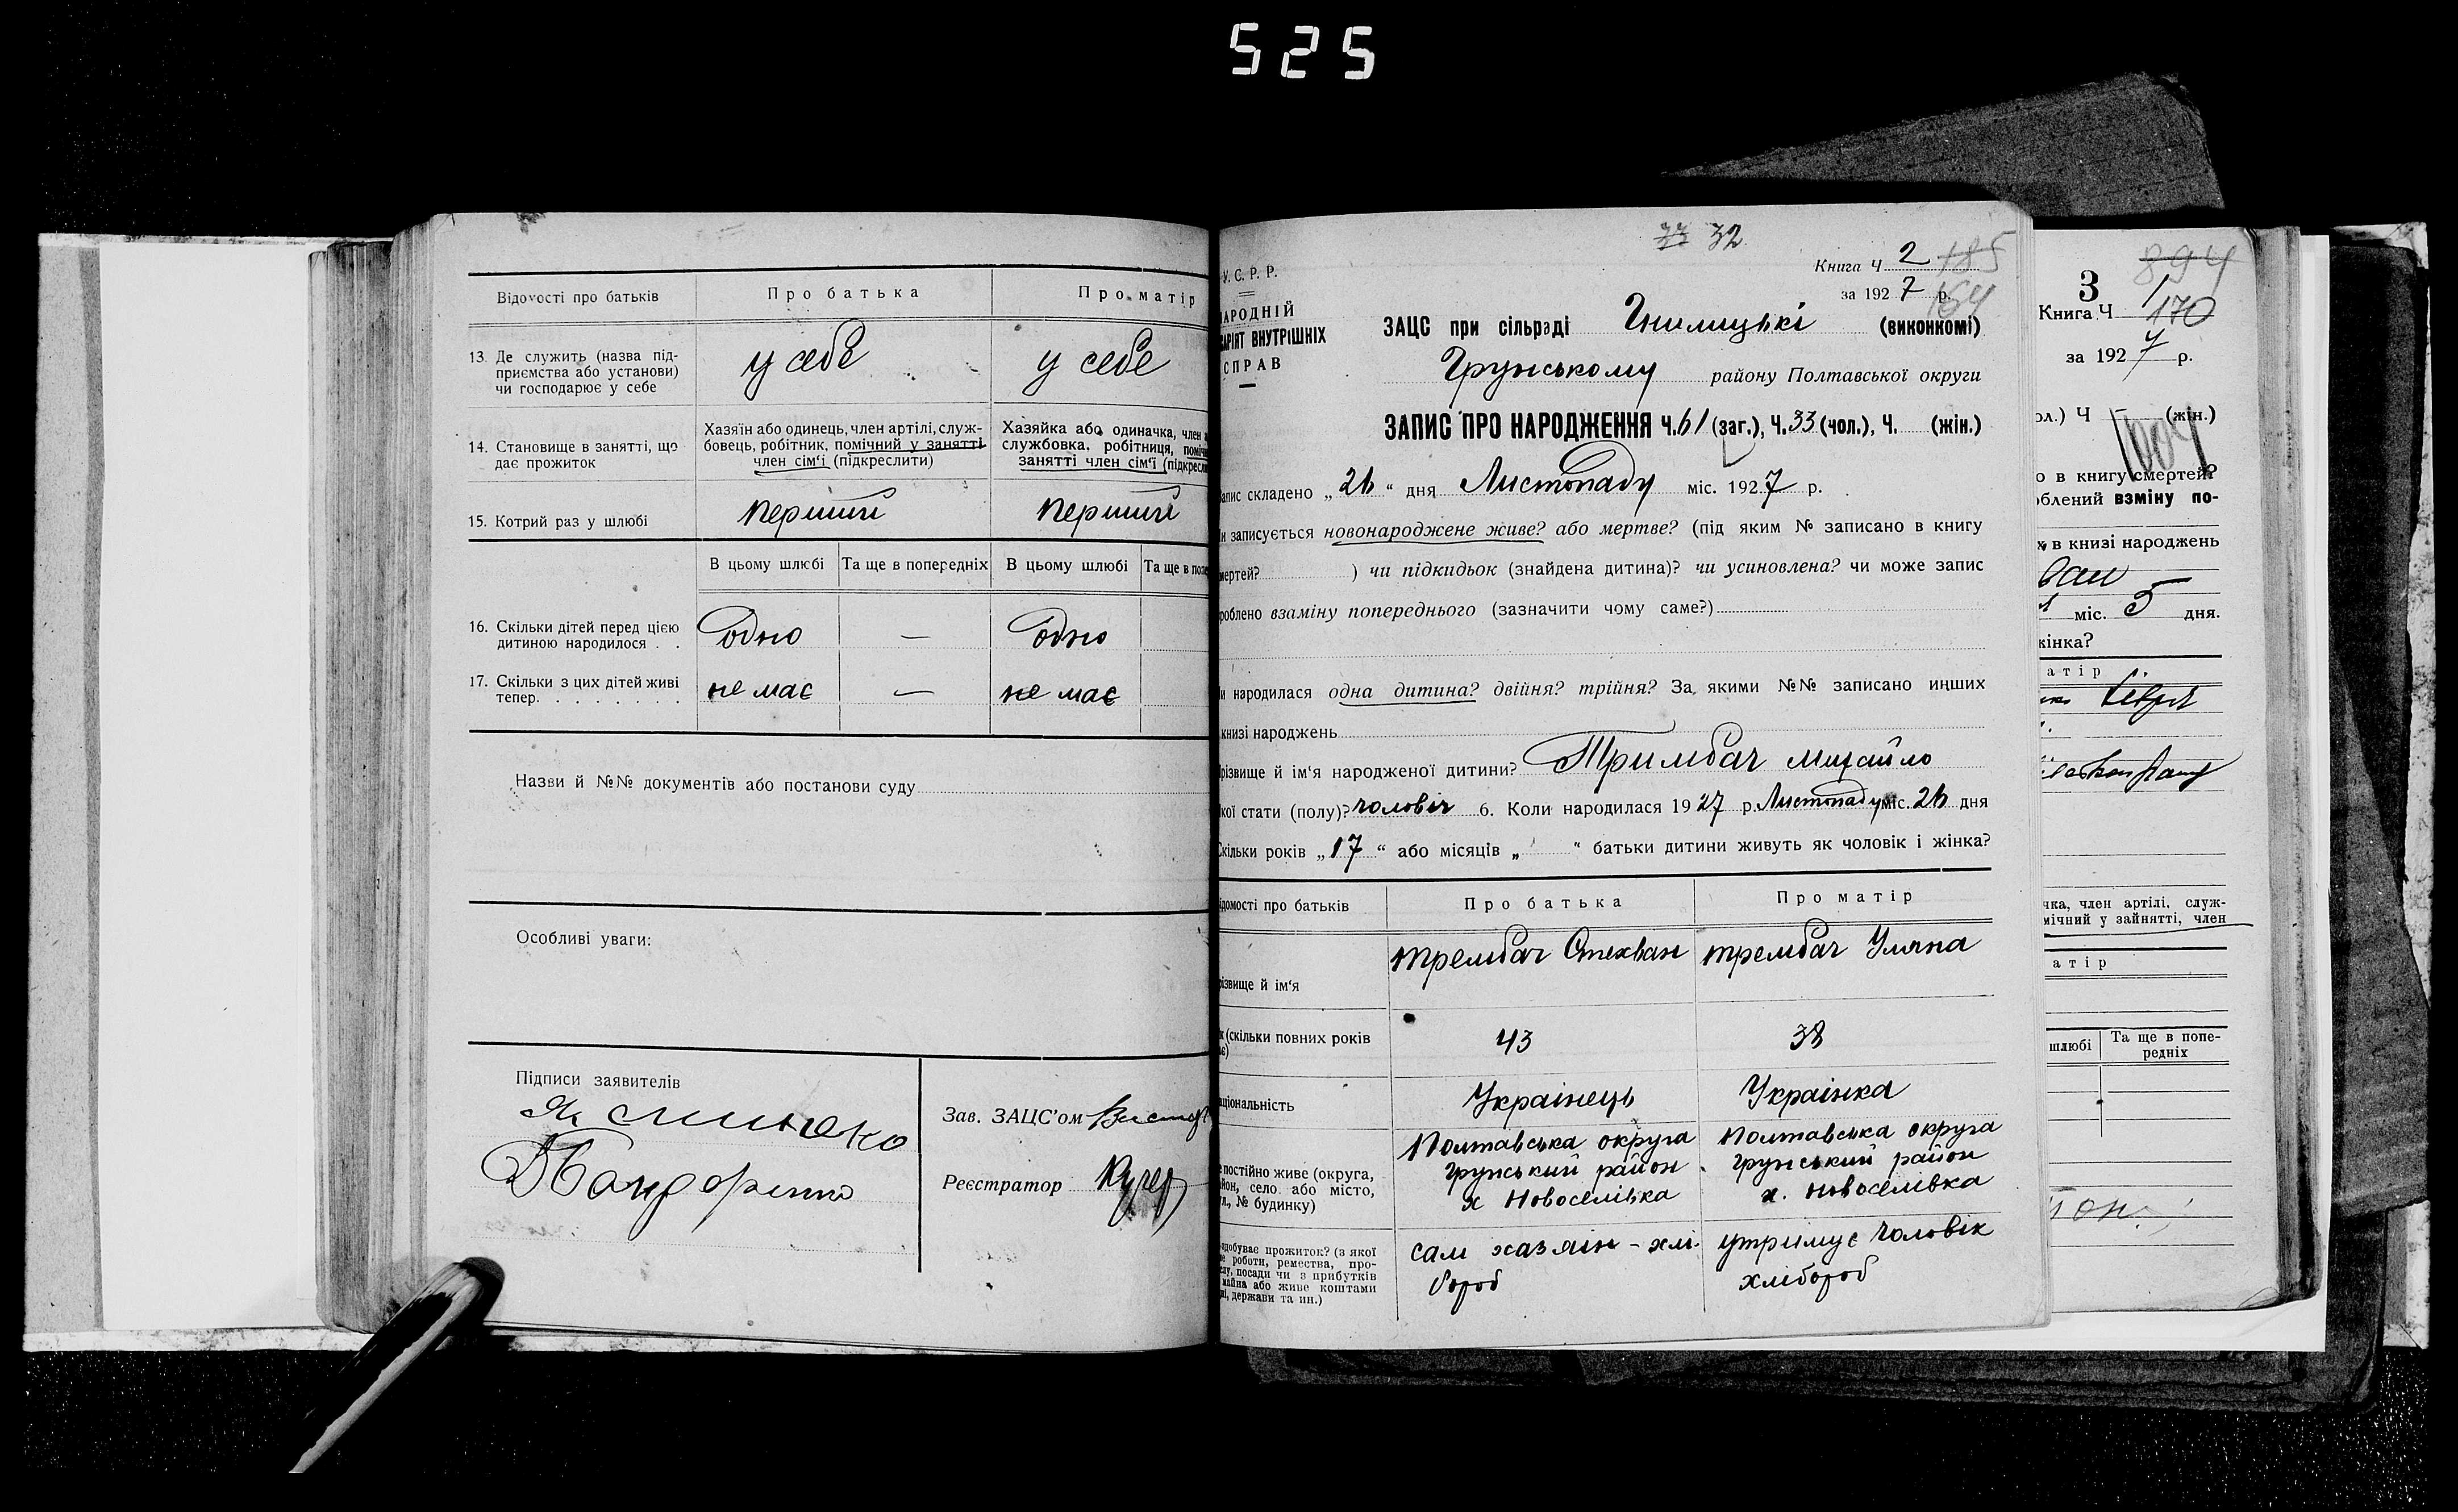 525
Відомості про батьків
Про батька
Про матір
13. Де служить (назва під-
приємства або установи)
чи господарює у себе
у себе
у себе
14. Становище в занятті, що
дає прожиток
Хазяїн або одинець, член артілі, служ-
бовець, робітник, помічний у занятті
член сім'ї (підкреслити)
Хазяйка або одиначка, член
службовка, робітниця,
занятті член сім'ї
15. Котрий раз у шлюбі
перший
перший
В цьому шлюбі
Та ще в попередніх
В цьому шлюбі
Та ще в
16. Скільки дітей перед цією
дитиною народилося . .
одно
—
одно
17. Скільки з цих дітей живі
тепер. . . . . . . .
не має
—
не має
Назви й №№ документів або постанови суду
Особливі уваги:
Підписи заявителів
Зав. ЗАЦС'ом
Реєстратор Кучер
33 32
У. С. Р. Р.
ВНУТРІШНІХ
СПРАВ
Книга Ч 2 185
за 1927 р. 164
ЗАЦС при сільраді Гнилицькі (виконкомі)
Грунському району Полтавської округи
ЗАПИС ПРО НАРОДЖЕННЯ Ч. 61 (заг.), Ч. 33 (чол.), Ч. (жін.)
складено „26“ дня Листопаду міс. 1927 р.
записується новонароджене живе? або мертве? (під яким № записано в книгу
) чи підкидьок (знайдена дитина)? чи усиновлена? чи може запис
взаміну попереднього (зазначити чому саме?)
народилася одна дитина? двійня? трійня? За якими №№ записано инших
книзі народжень
й ім'я народженої дитини? Тримбач Михайло
стати (полу)? чоловіч 6. Коли народилася 1927 р. Листопаду міс. 26 дня
Скільки років „17“ або місяців „ “ батьки дитини живуть як чоловік і жінка?
про батьків
Про батька
Про матір
й ім'я
Трембач Стехван
Трембач Уляна
(скільки повних років
43
38
Українець
Українка
постійно живе (округа,
село або місто,
№ будинку)
Полтавська округа
Грунський район
х Новоселівка
Полтавська округа
Грунський район
х. Новоселівка
прожиток? (з якої
роботи, ремества, про-
посади чи з прибутків
майна або живе коштами
держави та ин.)
сам хазяїн - хлі-
бороб
утримує чоловік
хлібороб
3
894
Книга Ч 1
170
за 1927 р.
Ч — (жін.)
в книгу смертей?
взміну по-
в книзі народжень
міс. 5 дня.
жінка?
член артілі, служ-
у зайнятті, член
шлюбі
Та ще в попе-
редніх